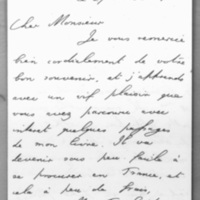 Cher Monsieur
Je vous remercie
bien cordialement de votre
bon souvenir, et j'apprends
avec un vif plaisir que
vous avez parcouru avec
intérêt quelques passages
de mon livre. Il va
devenir sous peu facile à
se procurer en France, et
cela à peu de frais,